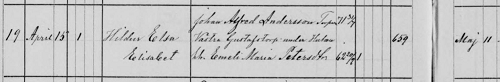 19 April 15 1 Hildur Elsa Elisabet
Johan Alfred Andersson
Västra Gustafstorp under Hulan
Emeli Maria Petersdr
659 Maj 11